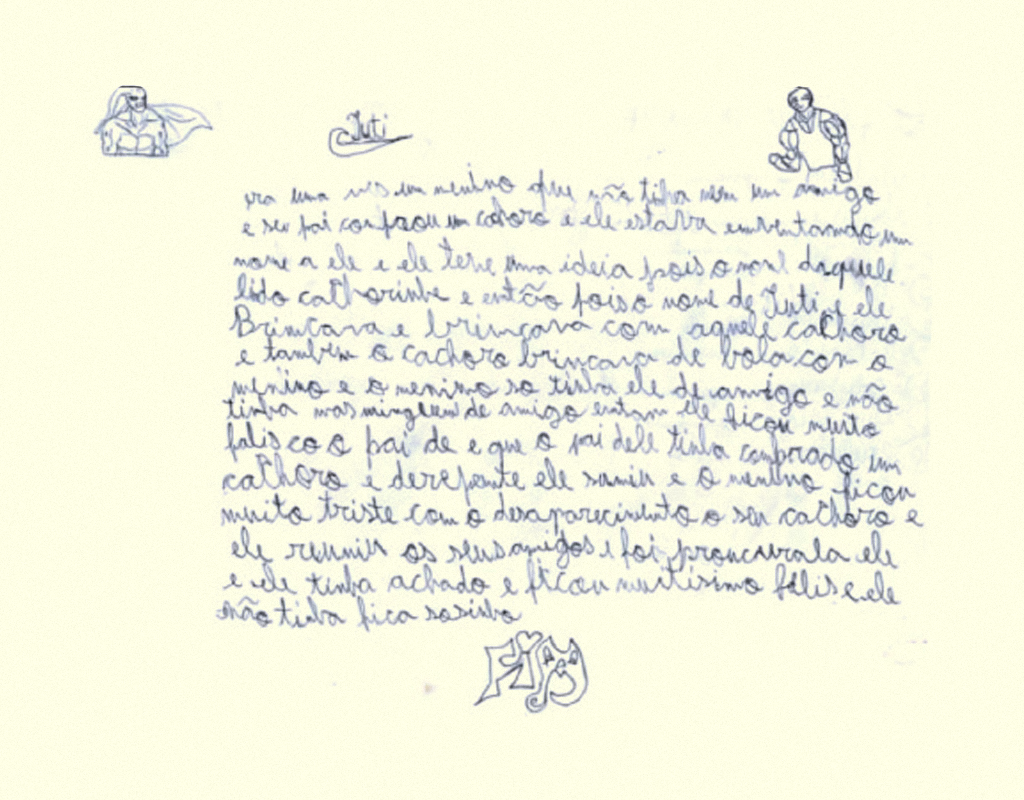 Tuti
era uma ves um menino que não tinha nem um amigo
e seu pai conpaou um cahoro e ele estava enventando um
nome a ele e ele teve uma ideia pois o nome daquele
lido cathorinho e entção pois o nome de Tuti e ele
Brincava e brincava com aquele cathoro
e tambem o cachoro brincava de bola com o
menino e o menino so tinha ele de amigo e não
tinha mas mingeum de amigo entam ele ficou muito
falis co o pai de e que o pai dele tinha comprado um
cathoro e derepente ele sumiu e o menino ficou
muito triste com o desaparecimento o seu cathoro e
ele reuniu os seus amigos e foi procurala ele
e ele tinha achado e ficou muitisimo felis e ele
não tinha fica sosinho
FiM